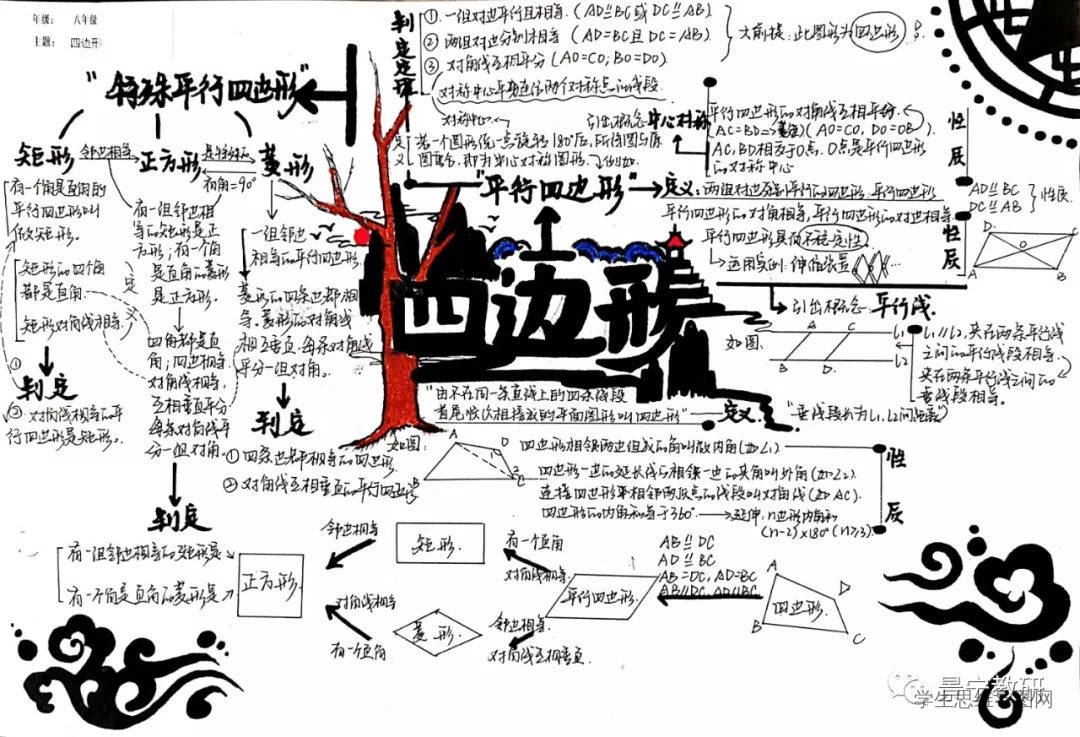 年级： 八年级
主题： 四边形
判定定理
①. 一组对边平行且相等. (AD⫽BC 或 DC⫽AB).
② 两组对边分别相等 (AD=BC且DC=AB).
③ 对角线互相平分 (AO=CO, BO=DO).
大前提：此图形为四边形
对称中心平分连结两个对称点的线段
对称中心.
引出概念 中心对称
定义
若一个图形绕一点旋转180°后, 所得图与原
图重合, 即为中心对称图形.
平行四边形的对角线互相平分.
(AO=CO, DO=OB).
AC, BD相交于O点. O点是平行四边形
的对称中心
性质
"特殊平行四边形"
矩形
邻边相等
正方形
有角=90°
菱形
有一个角是直角的
平行四边形叫
做矩形.
矩形的四个角
都是直角.
矩形对角线相等.
判定
② 对角线相等的平
行四边形是矩形.
有一组邻边相
等的矩形是正
方形；有一个角
是直角的菱形
是正方形.
四角都是直
角；四边相等.
对角线相等.
互相垂直平分
每条对角线平
分一组对角.
判定
一组邻边
相等的平行四边形.
菱形的四条边都相
等. 菱形的对角线
互相垂直. 每条对角线
平分一组对角.
判定
① 四条边都相等的四边形
② 对角线互相垂直的平行四边形
"平行四边形"
定义：两组对边分别平行的四边形.
平行四边形的对角相等, 平行四边形的对边相等.
平行四边形具有不稳定性
运用实例：伸缩装置
性质
AD⫽BC
DC⫽AB
性质
D.
C
O
A
B
四边形
引出概念 平行线
如图.
A
C
B
D.
L1
L2
L1//L2, 夹在两条平行线
之间的平行线段相等.
夹在两条平行线之间的
垂线段相等.
"由不在同一条直线上的四条线段
首尾依次相接成的平面图形叫四边形"
定义.
如图：
A
D
B
C
四边形相邻两边组成的角叫做内角(如∠1)
四边形一边的延长线与相邻一边的夹角叫外角(如∠2).
连接四边形不相邻两顶点的线段叫对角线(如AC).
四边形的内角和等于360°.
延伸. n边形内角和
(n-2)×180° (n≥3).
性质
有一组邻边相等的矩形是
有一个角是直角的菱形是
正方形.
邻边相等
矩形.
有一个直角
对角线相等.
对角线相等
有一个直角
菱形.
邻边相等.
对角线互相垂直.
平行四边形.
AB⫽DC
AD⫽BC
AB=DC, AD=BC
AB//DC, AD//BC
四边形.
A
D
B
C
景宁教研
学生思维导图网